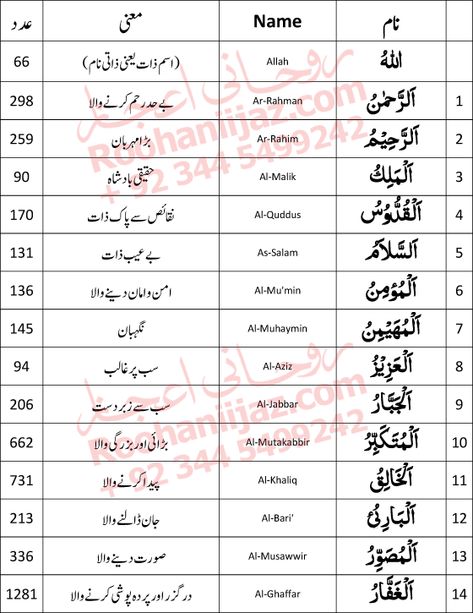 نام Name معنی عدد
اَللّٰهُ Allah (اسم ذات یعنی ذاتی نام) 66
1 اَلرَّحْمٰنُ Ar-Rahman بے حد رحم کرنے والا 298
2 اَلرَّحِيْمُ Ar-Rahim بڑا مہربان 259
3 اَلْمَلِكُ Al-Malik حقیقی بادشاہ 90
4 اَلْقُدُّوْسُ Al-Quddus نقائص سے پاک ذات 170
5 اَلسَّلَامُ As-Salam بے عیب ذات 131
6 اَلْمُؤْمِنُ Al-Mu'min امن و امان دینے والا 136
7 اَلْمُهَيْمِنُ Al-Muhaymin نگہبان 145
8 اَلْعَزِيْزُ Al-Aziz سب پر غالب 94
9 اَلْجَبَّارُ Al-Jabbar سب سے زبردست 206
10 اَلْمُتَكَبِّرُ Al-Mutakabbir بڑائی اور بزرگی والا 662
11 اَلْخَالِقُ Al-Khaliq پیدا کرنے والا 731
12 اَلْبَارِئُ Al-Bari' جان ڈالنے والا 213
13 اَلْمُصَوِّرُ Al-Musawwir صورت دینے والا 336
14 اَلْغَفَّارُ Al-Ghaffar درگزر اور پردہ پوشی کرنے والا 1281
روحانی اعجاز
Roohaniijaz.com
+ 92 344 5499242
روحانی اعجاز
Roohaniijaz.com
+ 92 344 5499242